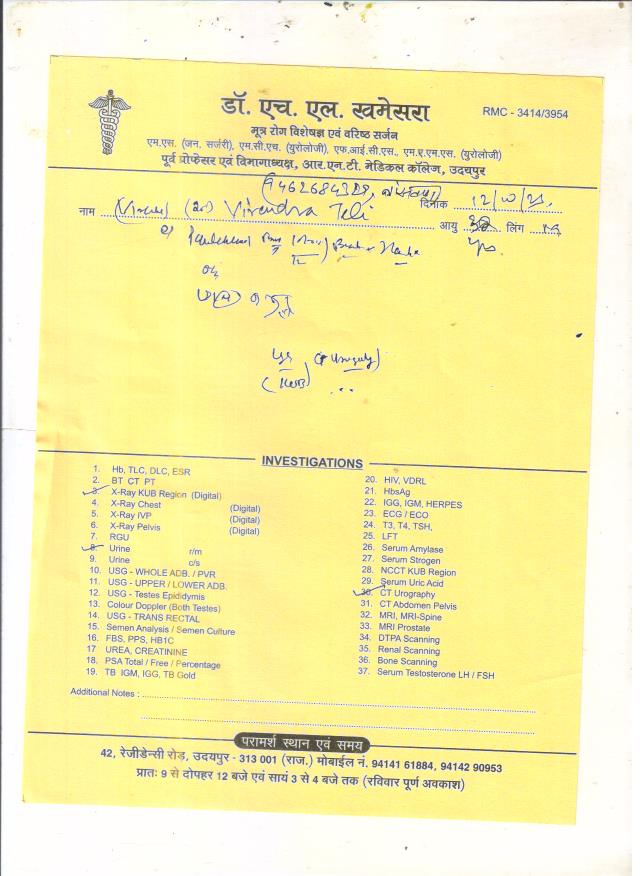 डॉ. एच. एल. खमेसरा
RMC - 3414/3954
मूत्र रोग विशेषज्ञ एवं वरिष्ठ सर्जन
एम.एस. (जन. सर्जरी), एम.सी.एच. (युरोलोजी), एफ.आई.सी.एस., एम.ए.एम.एस. (युरोलोजी)
पूर्व प्रोफेसर एवं विभागाध्यक्ष, आर.एन.टी. मेडिकल कॉलेज, उदयपुर
दिनांक
नाम Virendra Teli आयु लिंग
INVESTIGATIONS
1. Hb, TLC, DLC, ESR
2. BT CT PT
3. X-Ray KUB Region (Digital)
4. X-Ray Chest (Digital)
5. X-Ray IVP (Digital)
6. X-Ray Pelvis (Digital)
7. RGU
8. Urine r/m
9. Urine c/s
10. USG - WHOLE ADB. / PVR
11. USG - UPPER / LOWER ADB.
12. USG - Testes Epididymis
13. Colour Doppler (Both Testes)
14. USG - TRANS RECTAL
15. Semen Analysis / Semen Culture
16. FBS, PPS, HB1C
17 UREA, CREATININE
18. PSA Total / Free / Percentage
19. TB IGM, IGG, TB Gold
20. HIV, VDRL
21. HbsAg
22. IGG, IGM, HERPES
23. ECG / ECO
24. T3, T4, TSH,
25. LFT
26. Serum Amylase
27. Serum Strogen
28. NCCT KUB Region
29. Serum Uric Acid
30. CT Urography
31. CT Abdomen Pelvis
32. MRI, MRI-Spine
33. MRI Prostate
34. DTPA Scanning
35. Renal Scanning
36. Bone Scanning
37. Serum Testosterone LH / FSH
Additional Notes :
परामर्श स्थान एवं समय
42, रेजीडेन्सी रोड़, उदयपुर - 313 001 (राज.) मोबाईल नं. 94141 61884, 94142 90953
प्रातः 9 से दोपहर 12 बजे एवं सायं 3 से 4 बजे तक (रविवार पूर्ण अवकाश)